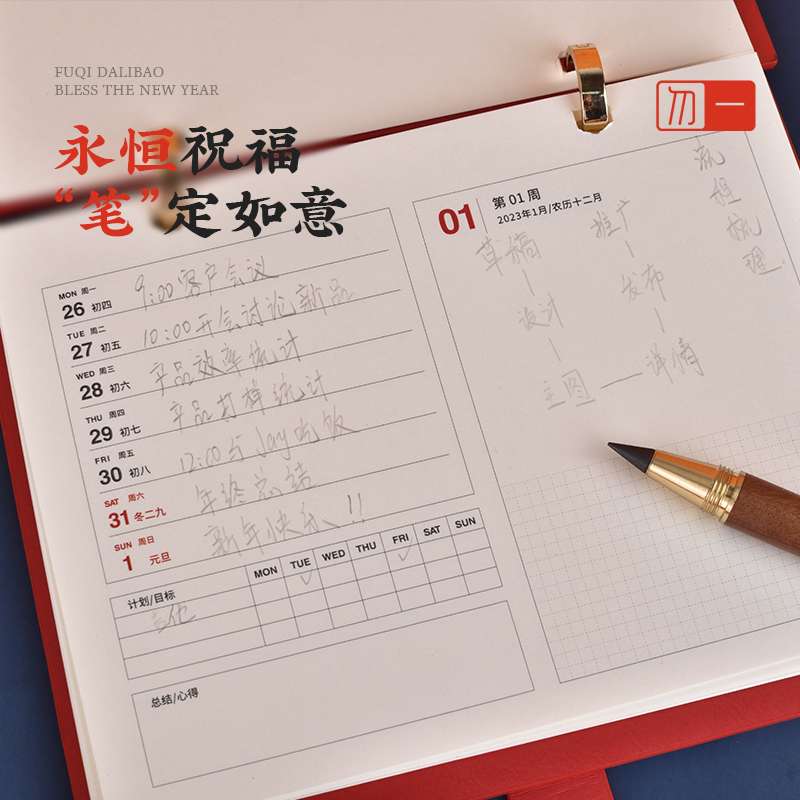 FUQI DALIBAO
BLESS THE NEW YEAR
永恒祝福
“笔”定如意
勿一
01
第 01 周
2023年1月/农历十二月
MON 周一
26 初四
9:00 客户会议
TUE 周二
27 初五
10:00开会讨论新品
WED 周三
28 初六
产品效率统计
THU 周四
29 初七
产品打样统计
FRI 周五
30 初八
12:00与Jay吃饭
SAT 周六
31 冬二九
年终总结
SUN 周日
1 元旦
新年快乐!!
草稿
设计
主图
详情
发布
推广
流程梳理
计划/目标
MON TUE WED THU FRI SAT SUN
总结/心得